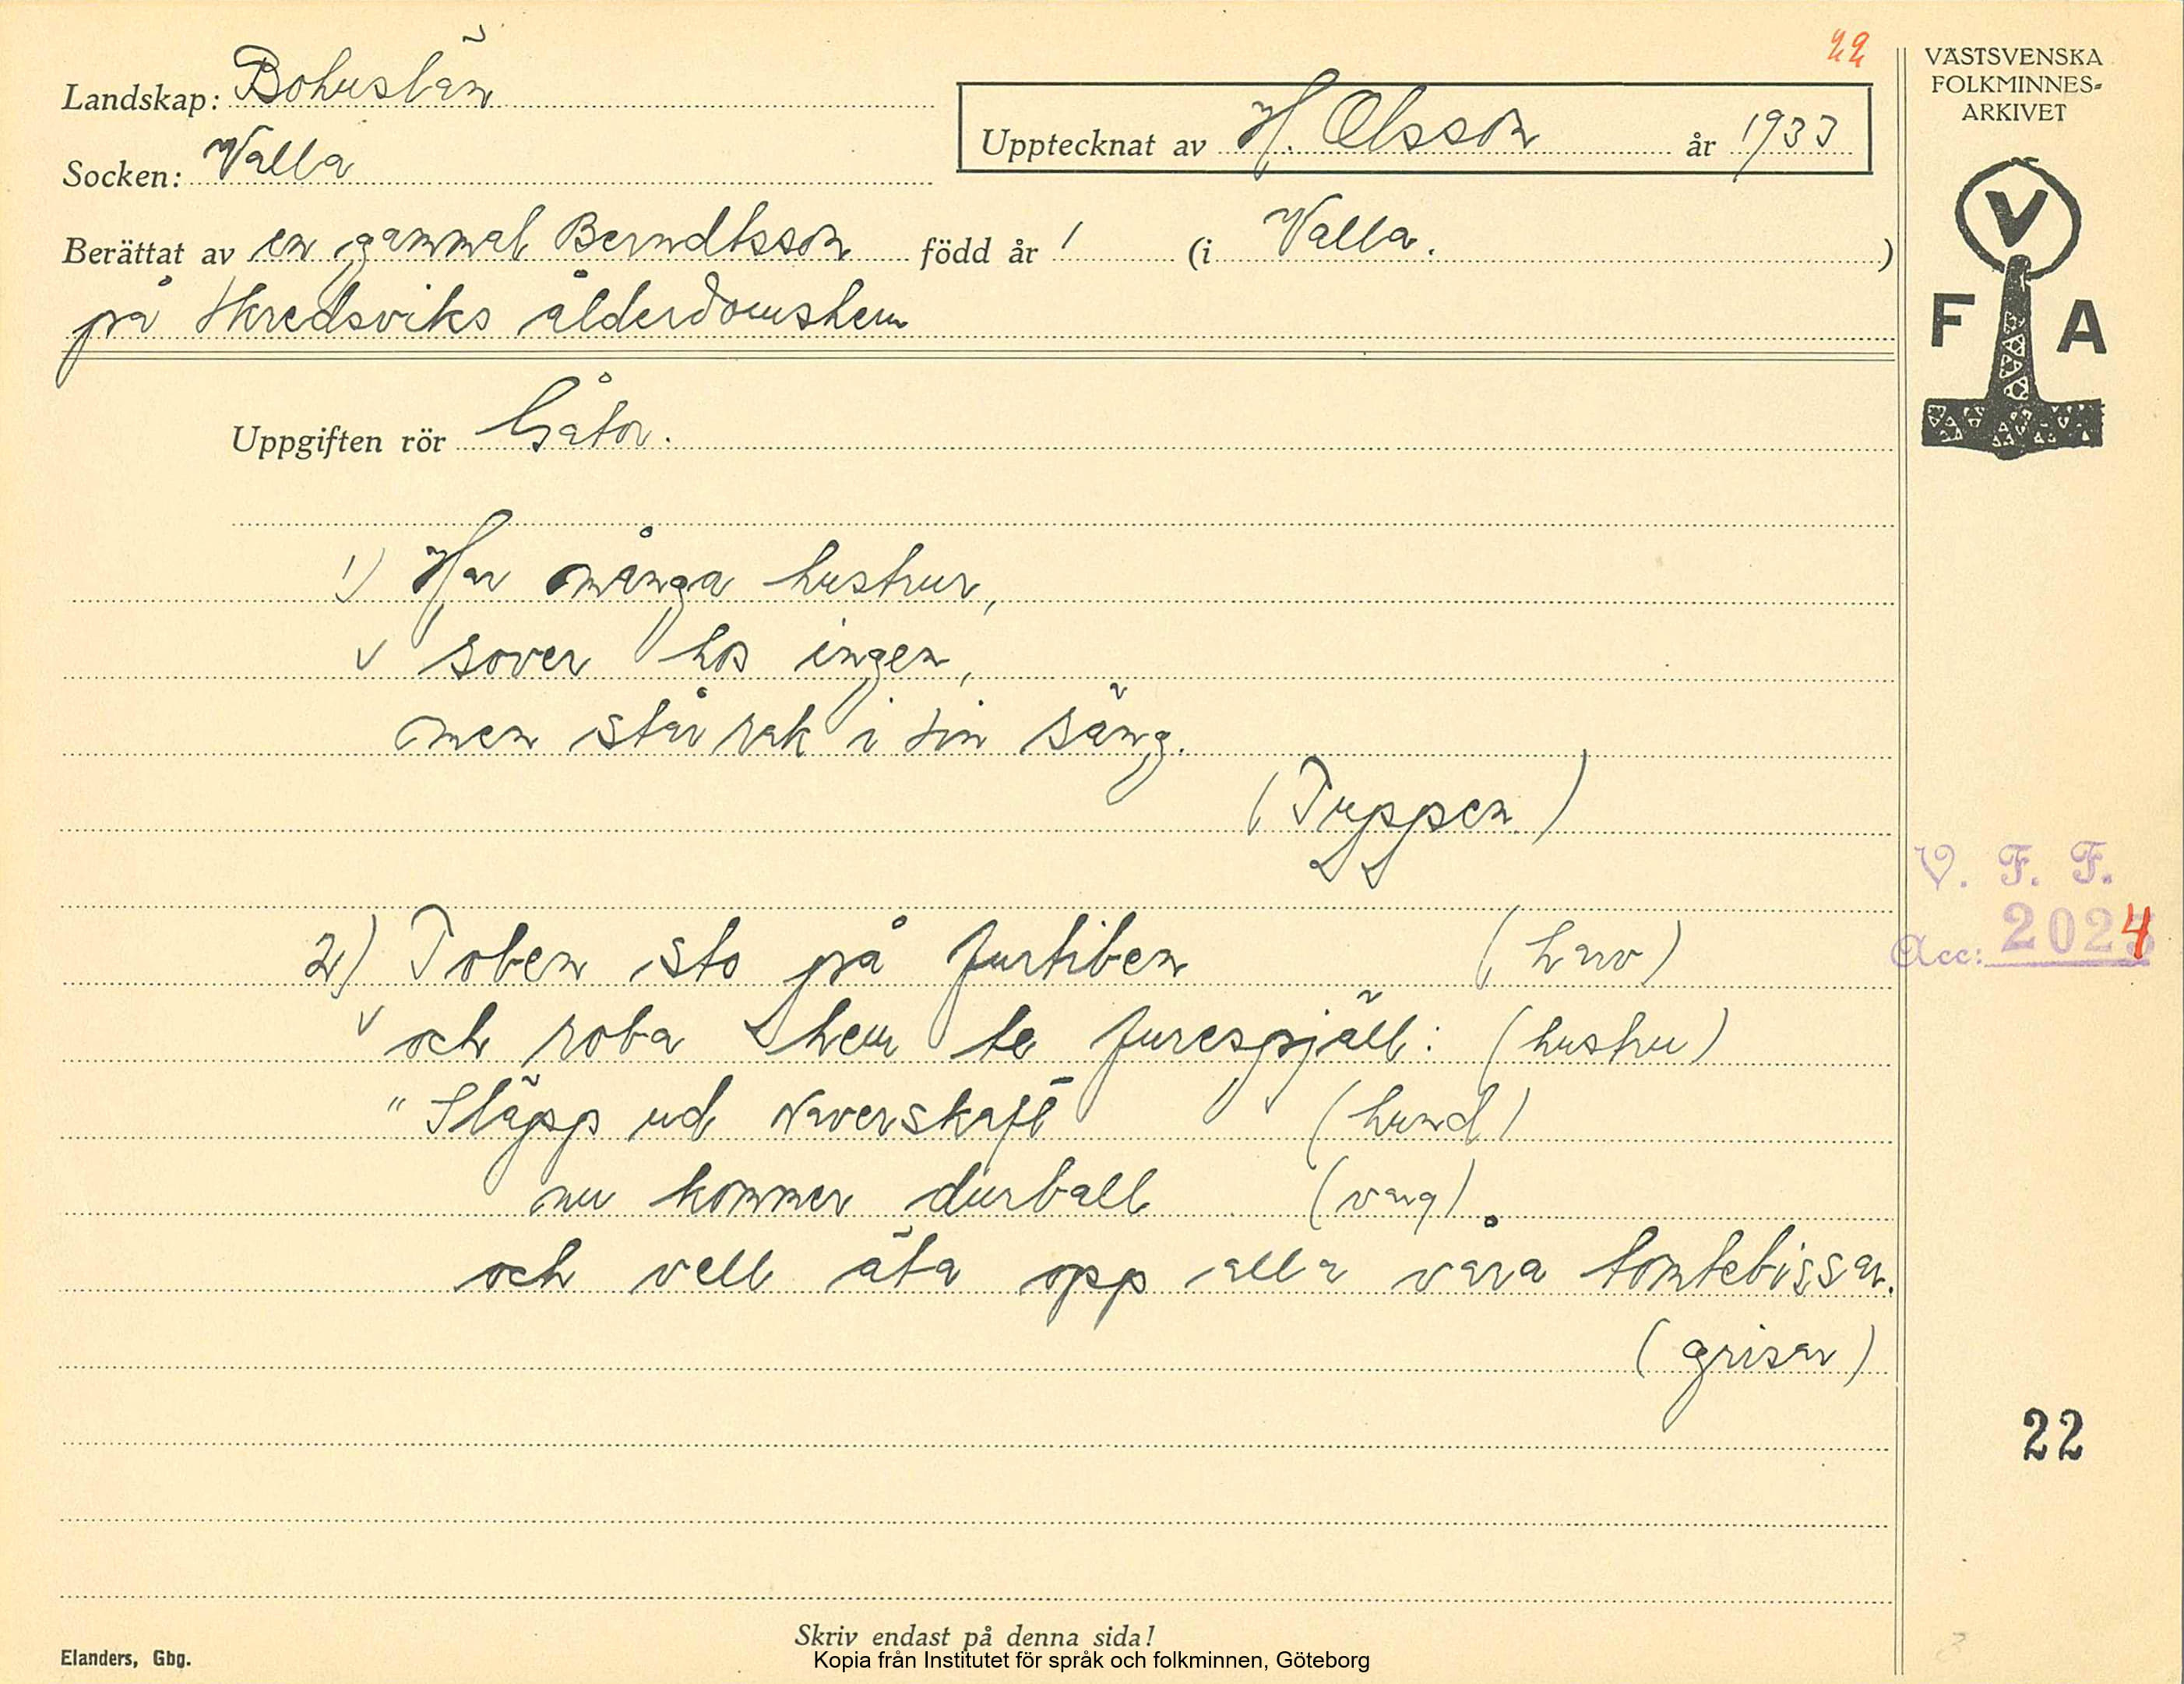 22
Landskap: Bohuslän
Socken: Valla
Upptecknat av H. Olsson år 1933
Berättat av en gammal Berndtsson född år / (i Valla.)
på Skredsviks ålderdomshem
VÄSTSVENSKA
FOLKMINNES-
ARKIVET
V
F A
Uppgiften rör Gåtor.
1) Har många hustrur,
v sover hos ingen,
men står rak i sin säng.
(Tuppen)
2) Toben sto på furtiben (harv)
v och roba hem te furespjäll: (hustru)
"Släpp ud naverskaft (hund)
nu kommer durball (varg)
och vell äta opp alla våra tomtebissar.
(grisar)
V. F. F.
Acc: 2024
22
Skriv endast på denna sida!
Elanders, Gbg.
Kopia från Institutet för språk och folkminnen, Göteborg